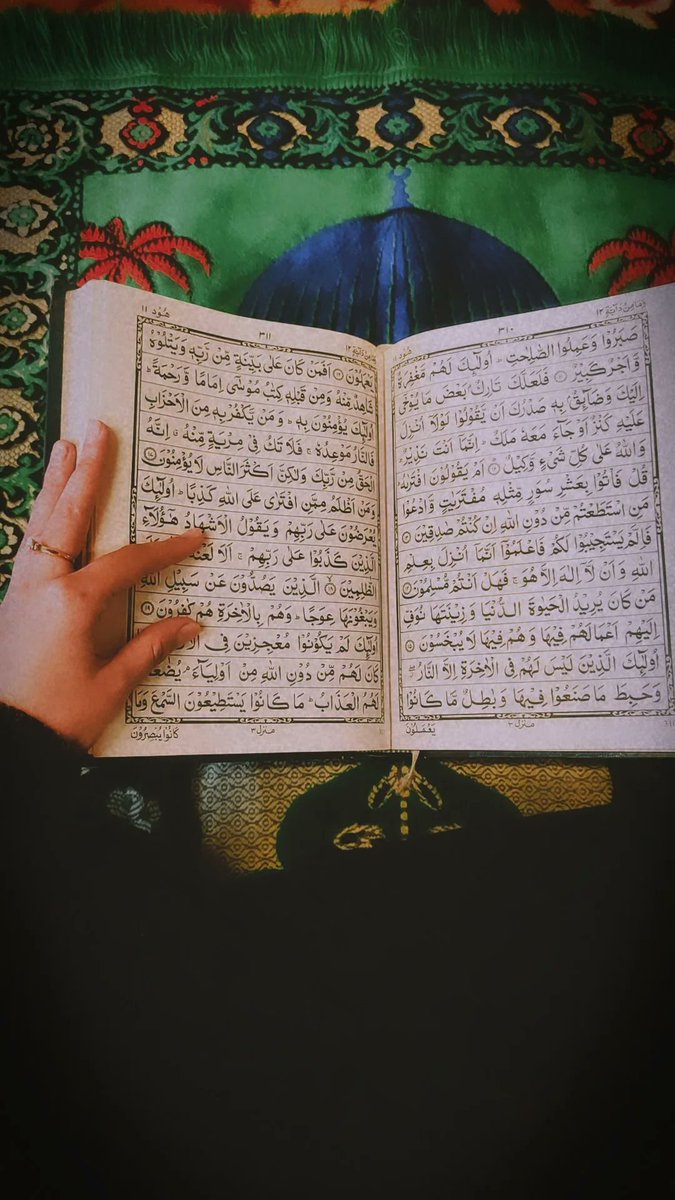 وَمَا مِنْ دَآبَّةٍ ١٢ ٣١٠ هُوْد ١١
صَبَرُوْا وَعَمِلُوا الصّٰلِحٰتِ ؕ اُولٰٓئِكَ لَهُمْ مَّغْفِرَةٌ
وَّاَجْرٌ كَبِيْرٌ ۝۱۱ فَلَعَلَّكَ تَارِكٌۢ بَعْضَ مَا يُوْحٰٓى
اِلَيْكَ وَضَآئِقٌۢ بِهٖ صَدْرُكَ اَنْ يَّقُوْلُوْا لَوْلَآ اُنْزِلَ
عَلَيْهِ كَنْزٌ اَوْ جَآءَ مَعَهٗ مَلَكٌ ؕ اِنَّمَآ اَنْتَ نَذِيْرٌ ؕ
وَاللّٰهُ عَلٰى كُلِّ شَيْءٍ وَّكِيْلٌ ۝۱۲ اَمْ يَقُوْلُوْنَ افْتَرٰىهُ ؕ
قُلْ فَاْتُوْا بِعَشْرِ سُوَرٍ مِّثْلِهٖ مُفْتَرَيٰتٍ وَّادْعُوْا
مَنِ اسْتَطَعْتُمْ مِّنْ دُوْنِ اللّٰهِ اِنْ كُنْتُمْ صٰدِقِيْنَ ۝۱۳
فَاِلَّمْ يَسْتَجِيْبُوْا لَكُمْ فَاعْلَمُوْٓا اَنَّمَآ اُنْزِلَ بِعِلْمِ
اللّٰهِ وَاَنْ لَّآ اِلٰهَ اِلَّا هُوَ ۚ فَهَلْ اَنْتُمْ مُّسْلِمُوْنَ ۝۱۴
مَنْ كَانَ يُرِيْدُ الْحَيٰوةَ الدُّنْيَا وَزِيْنَتَهَا نُوَفِّ
اِلَيْهِمْ اَعْمَالَهُمْ فِيْهَا وَهُمْ فِيْهَا لَا يُبْخَسُوْنَ ۝۱۵
اُولٰٓئِكَ الَّذِيْنَ لَيْسَ لَهُمْ فِي الْاٰخِرَةِ اِلَّا النَّارُ ۖ
وَحَبِطَ مَا صَنَعُوْا فِيْهَا وَبٰطِلٌ مَّا كَانُوْا
منزل ٣ يَعْمَلُوْنَ
وَمَا مِنْ دَآبَّةٍ ١٢ ٣١١ هُوْد ١١
يَعْمَلُوْنَ ۝۱۶ اَفَمَنْ كَانَ عَلٰى بَيِّنَةٍ مِّنْ رَّبِّهٖ وَيَتْلُوْهُ
شَاهِدٌ مِّنْهُ وَمِنْ قَبْلِهٖ كِتٰبُ مُوْسٰٓى اِمَامًا وَّرَحْمَةً ؕ
اُولٰٓئِكَ يُؤْمِنُوْنَ بِهٖ ؕ وَمَنْ يَّكْفُرْ بِهٖ مِنَ الْاَحْزَابِ
فَالنَّارُ مَوْعِدُهٗ ۚ فَلَا تَكُ فِيْ مِرْيَةٍ مِّنْهُ ۗ اِنَّهُ
الْحَقُّ مِنْ رَّبِّكَ وَلٰكِنَّ اَكْثَرَ النَّاسِ لَا يُؤْمِنُوْنَ ۝۱۷
وَمَنْ اَظْلَمُ مِمَّنِ افْتَرٰى عَلَى اللّٰهِ كَذِبًا ؕ اُولٰٓئِكَ
يُعْرَضُوْنَ عَلٰى رَبِّهِمْ وَيَقُوْلُ الْاَشْهَادُ هٰٓؤُلَآءِ
الَّذِيْنَ كَذَبُوْا عَلٰى رَبِّهِمْ ۚ اَلَا لَعْنَةُ
الظّٰلِمِيْنَ ۝۱۸ الَّذِيْنَ يَصُدُّوْنَ عَنْ سَبِيْلِ اللّٰهِ
وَيَبْغُوْنَهَا عِوَجًا ؕ وَهُمْ بِالْاٰخِرَةِ هُمْ كٰفِرُوْنَ ۝۱۹
اُولٰٓئِكَ لَمْ يَكُوْنُوْا مُعْجِزِيْنَ فِي
كَانَ لَهُمْ مِّنْ دُوْنِ اللّٰهِ مِنْ اَوْلِيَآءَ ۘ يُضٰعَفُ
لَهُمُ الْعَذَابُ ؕ مَا كَانُوْا يَسْتَطِيْعُوْنَ السَّمْعَ وَمَا
منزل ٣ كَانُوْا يُبْصِرُوْنَ